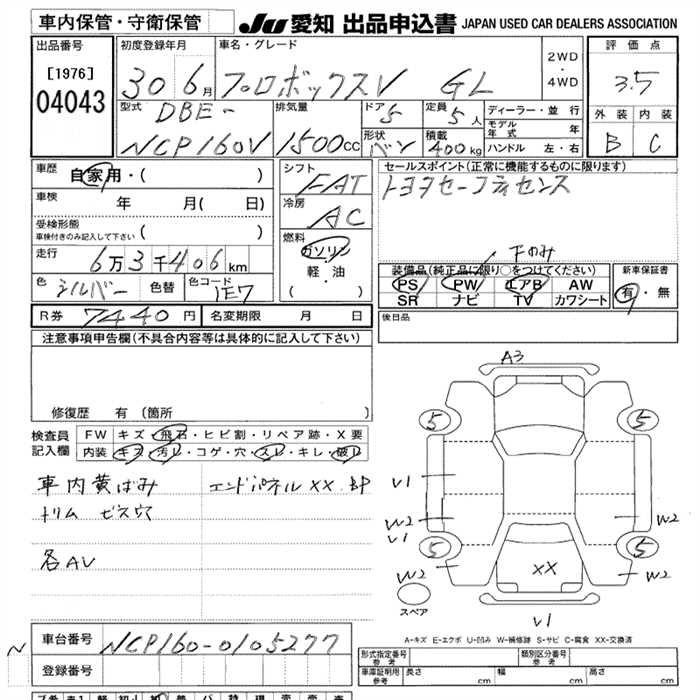 車内保管・守衛保管
JU 愛知 出品申込書 JAPAN USED CAR DEALERS ASSOCIATION
出品番号
[1976]
04043
初度登録年月
30 6月
車名・グレード
プロボックスV GL
2WD
・
4WD
評価点
3.5
外装 内装
B C
型式
DBE-
NCP160V
排気量
1500cc
ドア
5
定員
5人
形状
バン
積載
400kg
ディーラー・並行
モデル年式 年
ハンドル 左・右
車歴
自家用・( )
車検 年 月( 日)
受検形態
車検付きのみ記入して下さい ( )
走行
6万3千406km
色
シルバー
色替
色コード
1E7
シフト
FAT
冷房
AC
燃料
ガソリン
軽・油
( )
セールスポイント(正常に機能するものに限ります)
トヨタセーフティセンス
下のみ
装備品(純正品に限り○をつけてください)
PS PW エアB AW
SR ナビ TV カワシート
新車保証書
有・無
R券 7440円
名変期限 月 日
後日品
注意事項申告欄(不具合内容等は具体的に記入して下さい)
修復歴 有(箇所
検査員
記入欄
FW キズ・飛石・ヒビ割・リペア跡・X要
内装 キズ・汚レ・コゲ・穴・スレ・キレ・破レ
車内黄ばみ
トリム ビス穴
各AV
エンドパネルXX
A3
5
5
V1
W2
V1
W2
5
5
W2
XX
W2
スペア
V1
A-キズ E-エクボ U-凹み W-補修跡 S-サビ C-腐食 XX-交換済
N
車台番号 NCP160-0105277
登録番号
形式指定番号
参考
類別区分番号
参考
車庫証明用
参考
長さ cm
幅 cm
高さ cm